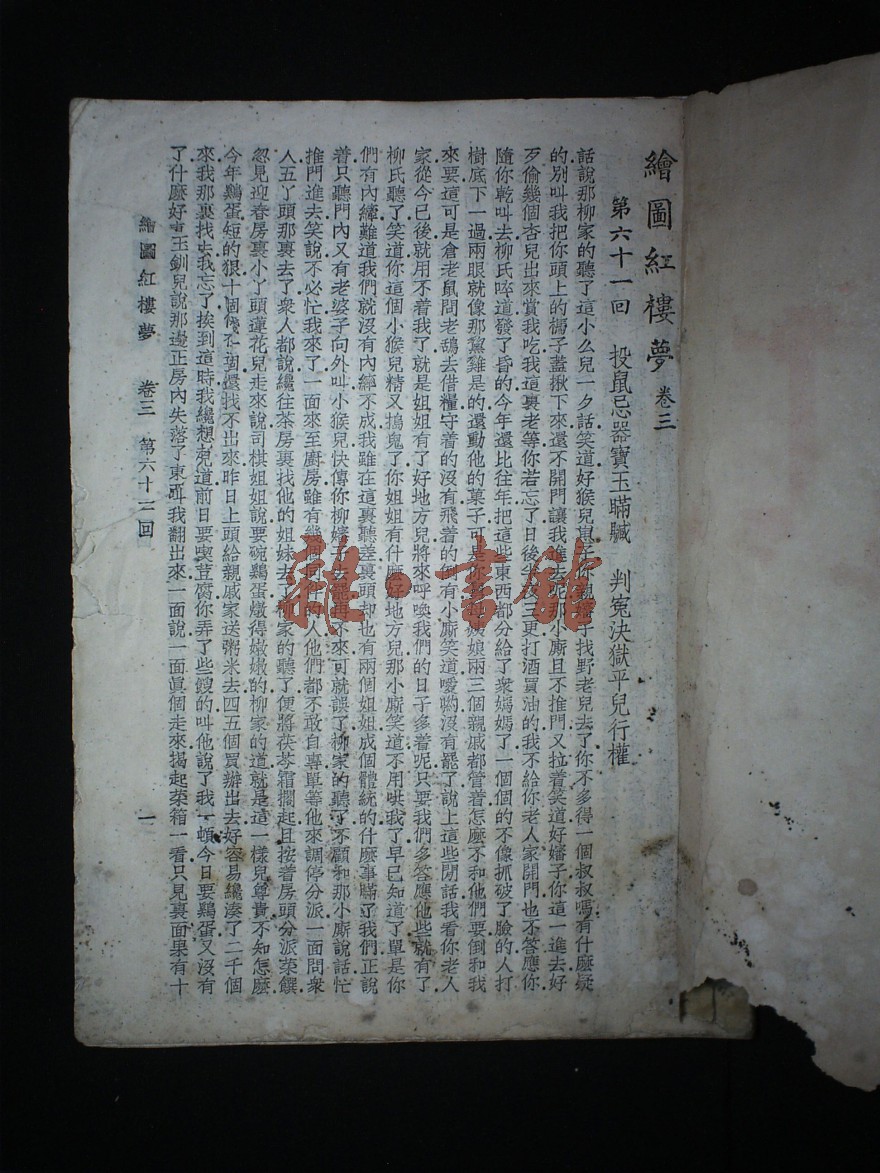 繪圖紅樓夢 卷三
第六十一回 投鼠忌器寶玉瞞贓 判冤決獄平兒行權
話說那柳家的聽了這小么兒一夕話笑道好猴兒崽子你親嬸子找野老兒去了你不多得一個叔叔嗎有什麼疑
的別叫我把你頭上的榪子蓋揪下來還不開門讓我進去呢那小廝且不推門又拉着笑道好嬸子你這一進去好
歹偷幾個杏兒出來賞我吃我這裏老等你若忘了日後半夜三更打酒買油的我不給你老人家開門也不答應你
隨你乾叫去柳氏啐道發了昏的今年還比往年把這些東西都分給了衆媽媽了一個個的不像抓破了臉的人打
樹底下一過兩眼就像那黧雞是的還動他的菓子可是你舅母姨娘兩三個親戚都管着怎麼不和他們要倒和我
來要這可是倉老鼠問老鴰去借糧守着的沒有飛着的倒有小廝笑道噯喲沒有罷了說上這些閒話我看你老人
家從今已後就用不着我了就是姐姐有了好地方兒將來呼喚我們的日子多着呢只要我們多答應他些就有了
柳氏聽了笑道你這個小猴兒精又搗鬼了你姐姐有什麼好地方兒那小廝笑道不用哄我了早已知道了單是你
們有內縴難道我們就沒有內縴不成我雖在這裏聽差裏頭却也有兩個姐姐成個體統的什麼事瞞了我們正說
着只聽門內又有老婆子向外叫小猴兒快傳你柳嬸子去罷再不來可就誤了柳家的聽了不顧和那小廝說話忙
推門進去笑說不必忙我來了一面來至廚房雖有幾個同伴的人他們都不敢自專單等他來調停分派一面問衆
人五丫頭那裏去了衆人都說纔往茶房裏找他的姐妹去了柳家的聽了便將茯苓霜擱起且按着房頭分派菜饌
忽見迎春房裏小丫頭蓮花兒走來說司棋姐姐說要碗鷄蛋燉得嫩嫩的柳家的道就是這一樣兒尊貴不知怎麼
今年鷄蛋短的狠十個錢一個還找不出來昨日上頭給親戚家送粥米去四五個買辦出去好容易纔湊了二千個
來我那裏找去我忘了挨到這時我纔想起道前日要喫荳腐你弄了些餿的叫他說了我一頓今日要鷄蛋又沒有
了什麼好玉釧兒說那邊正房內失落了東西我翻出來一面說一面眞個走來揭起菜箱一看只見裏面果有十
繪圖紅樓夢 卷三 第六十一回 一
雜·書館